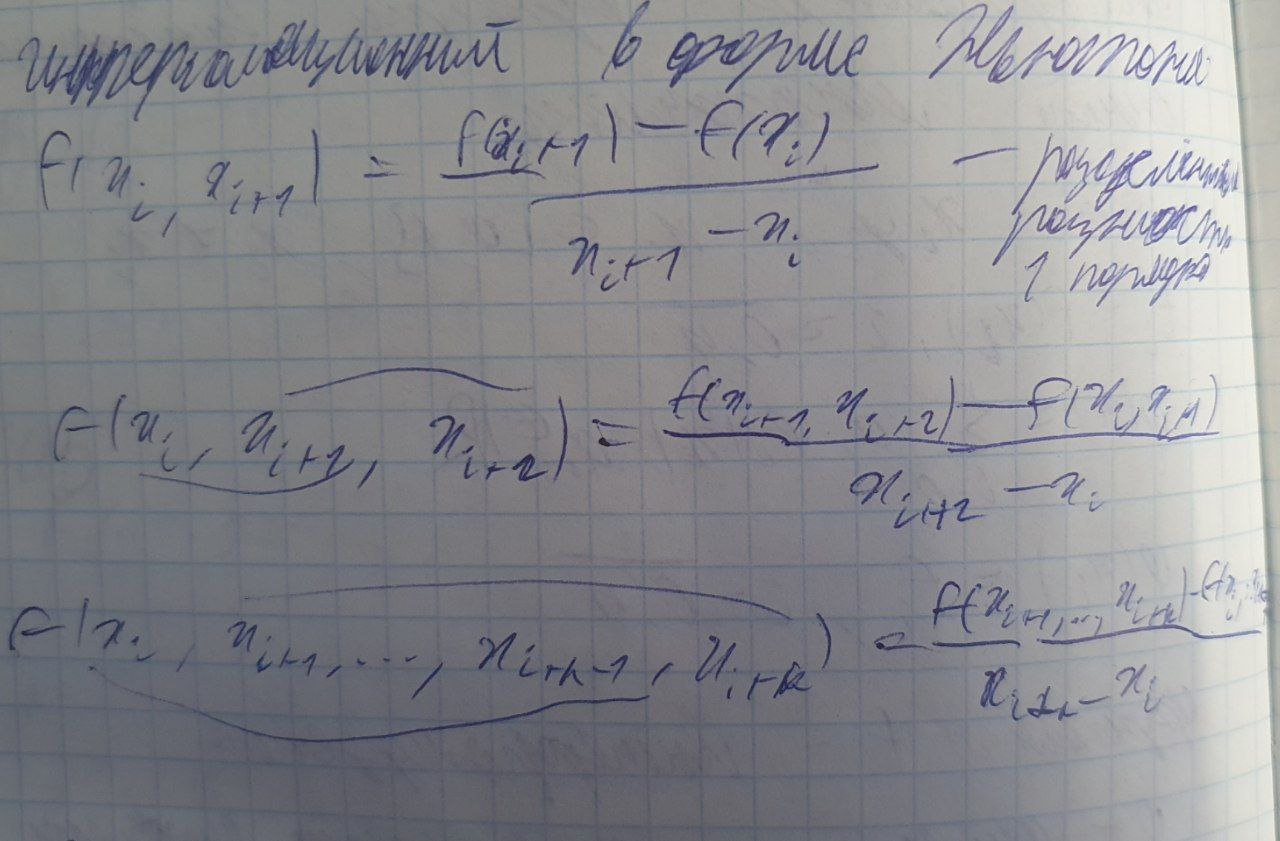 интерполяционный в форме Ньютона
f(x_i, x_{i+1}) = (f(x_{i+1}) - f(x_i)) / (x_{i+1} - x_i) — разделённая
разность
1 порядка
f(x_i, x_{i+1}, x_{i+2}) = (f(x_{i+1}, x_{i+2}) - f(x_i, x_{i+1})) / (x_{i+2} - x_i)
f(x_i, x_{i+1}, ..., x_{i+k-1}, x_{i+k}) = (f(x_{i+1}, ..., x_{i+k}) - f(x_i, ...)) / (x_{i+k} - x_i)